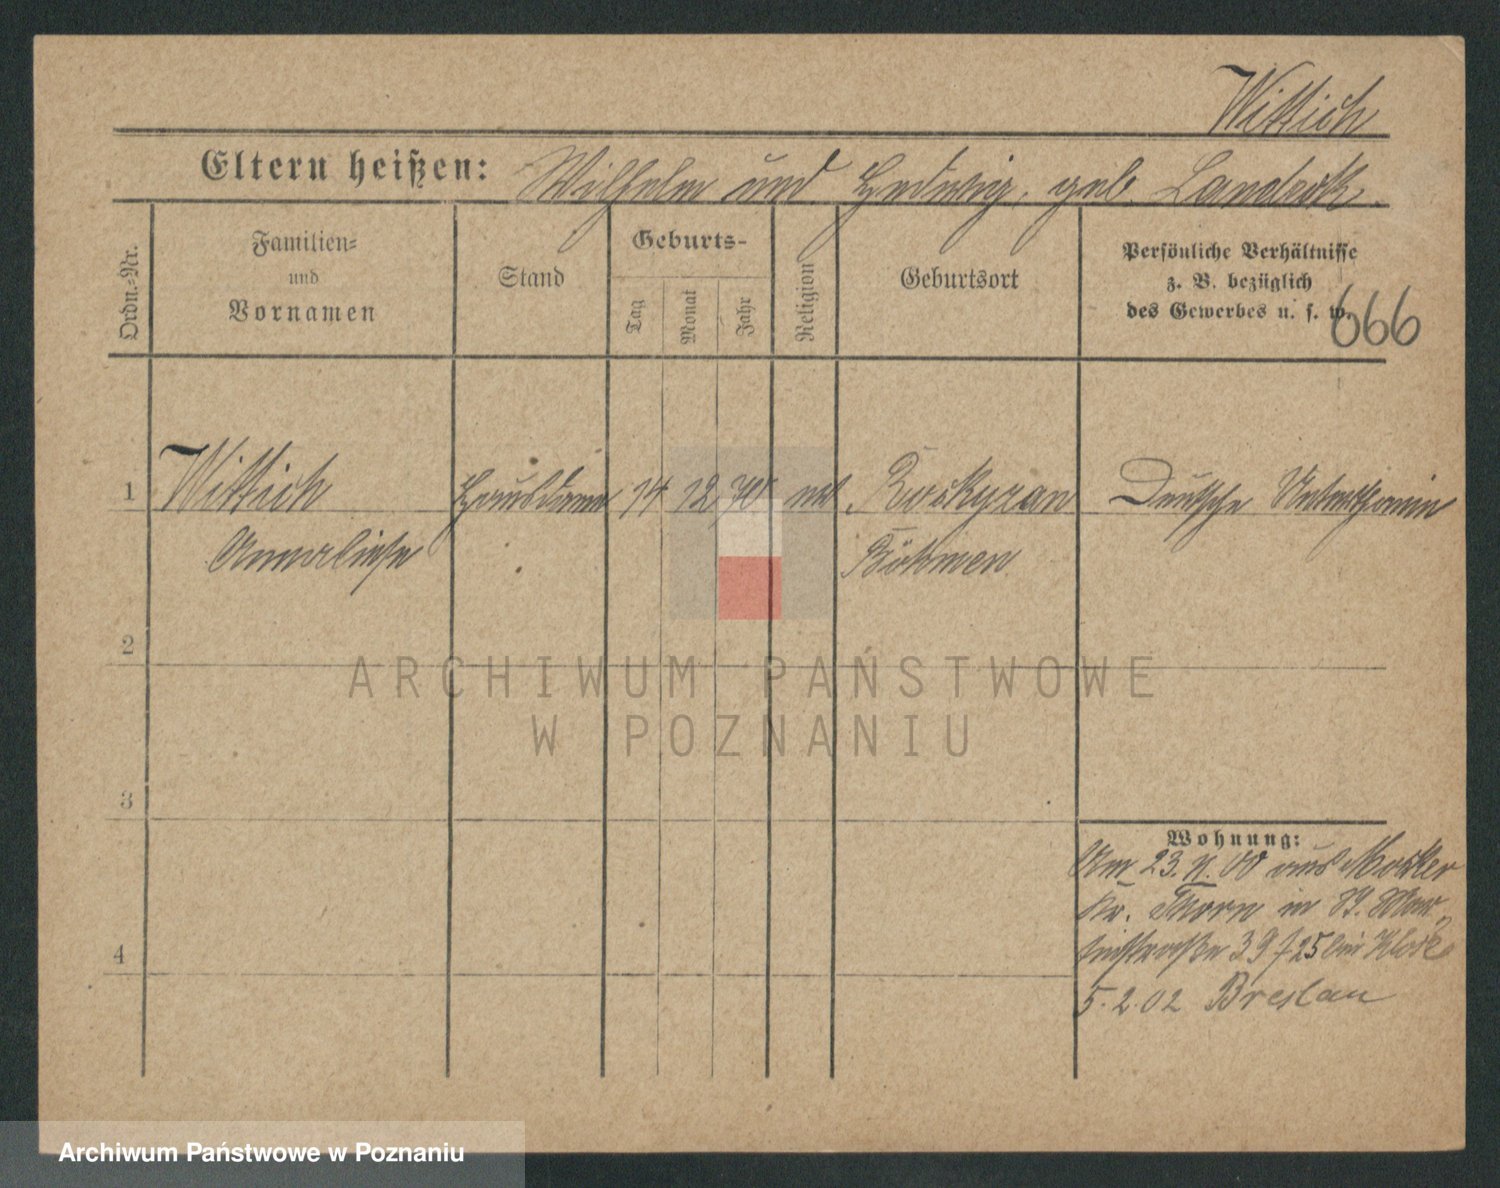 Wittich
Eltern heißen: Wilhelm und Hedwig, geb. Landeck.
Ordn.-Nr.
Familien-
und
Vornamen
Stand
Geburts-
Tag
Monat
Jahr
Religion
Geburtsort
Persönliche Verhältnisse
z. B. bezüglich
des Gewerbes u. s. w.
666
1 Wittich Hausdame 14 12 70 Deutsche Unterthanin
Annaliese Böhmen
2
ARCHIWUM PAŃSTWOWE
W POZNANIU
3
Wohnung:
Am 23. 11. 00 aus Mocker
Kr. Thorn in
39 725 bei
4
5. 2. 02 Breslau
Archiwum Państwowe w Poznaniu